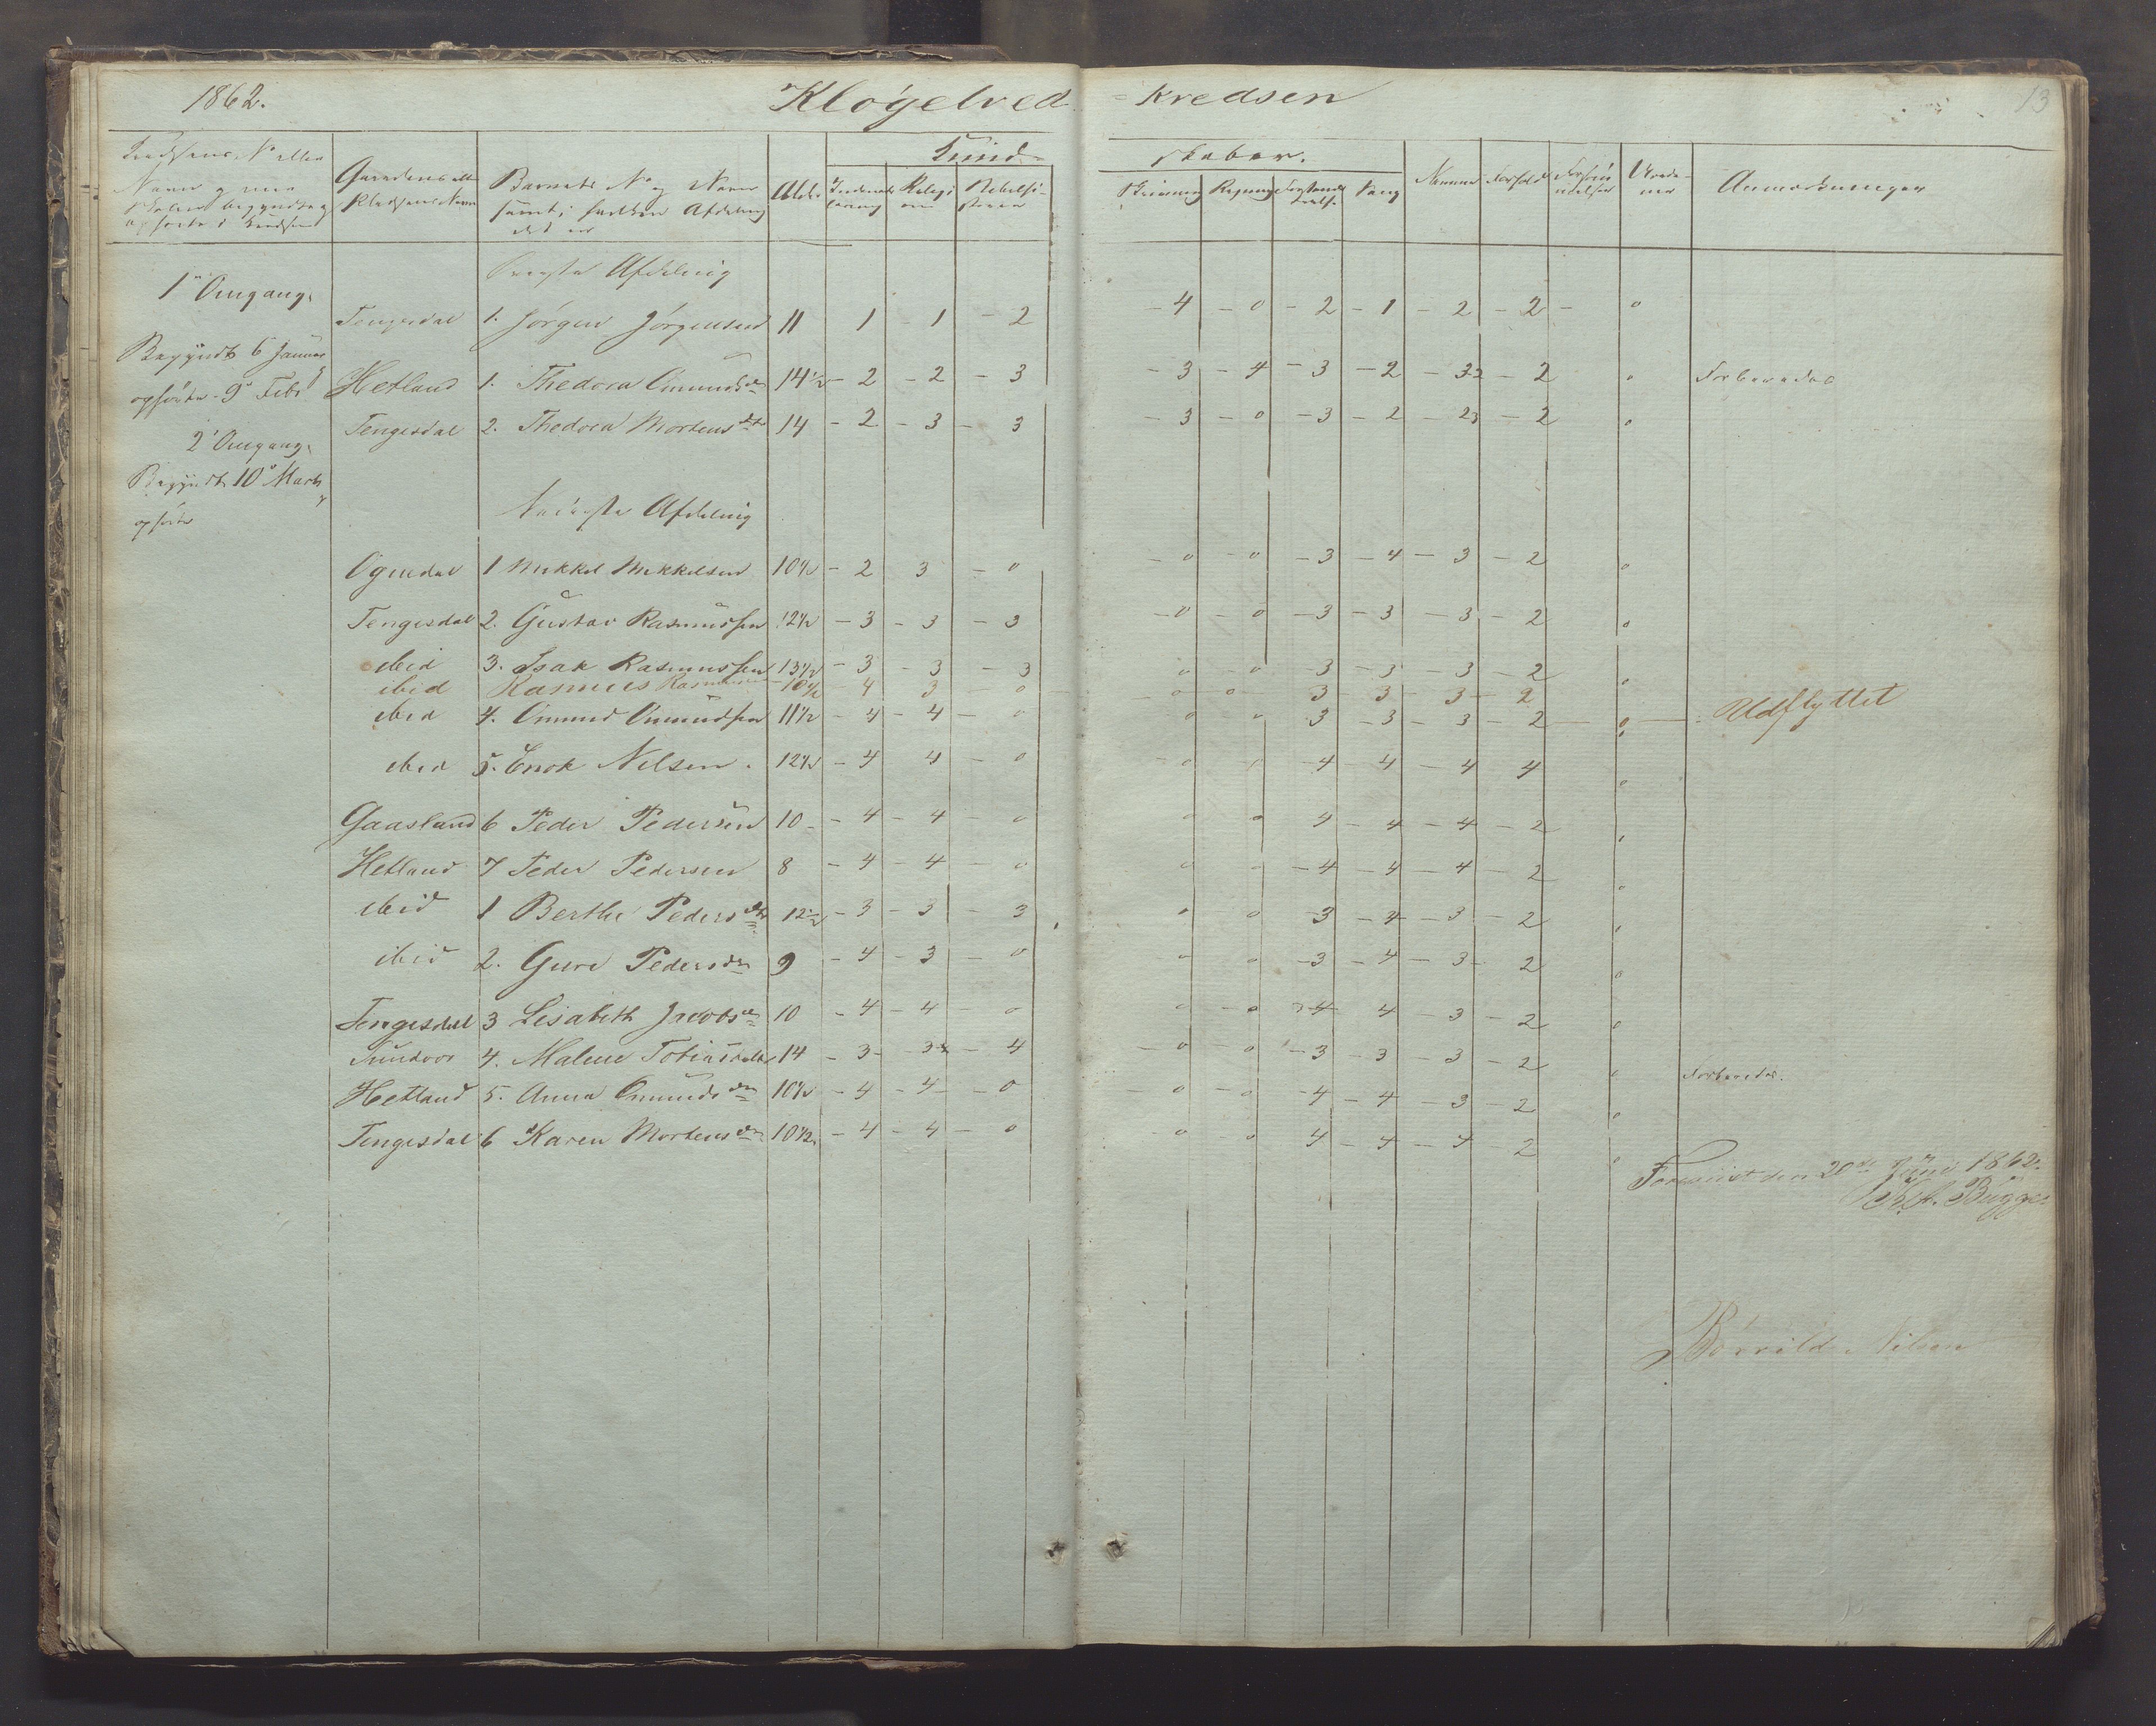 1862. Klögetved - Kredsen 13
Kund- skaber.
Gaardens eller Pladsens Navn
Barnets No og Navn samt i hvilken Afdeling det er
Alder Religion
Skrivning Regning Sang Nemme Anmærkninger
Øverste Afdeling
1ste Omgang.
Tengesdal 1. Jørgen Jørgensen 11 1 - 1 - 2 - 4 - 0 - 2 - 1 - 2 - 2 - 0
Begyndt 6 Januar
Hetland 1. Thedora Omundsdr 14 1/2 - 2 - 2 - 3 - 3 - 4 - 3 - 2 - 32 - 2 0
ophørte 9de Febr
Tengesdal 2. Thedora Mortensdtr 14 - 2 - 3 - 3 - 3 - 0 - 3 - 2 - 23 - 2 0
2den Omgang.
Begyndt 10de Marts
ophørte
Nederste Afdeling
Ognedal 1 Mikkel Mikkelsen 10 1/2 - 2 3 - 0 - 0 - 0 - 3 - 4 - 3 - 2 0
Tengesdal 2. Gustav Rasmussen 12 1/2 - 3 - 3 - 3 - 0 - 0 - 3 - 3 - 3 - 2 0
ibid 3. Isak Rasmussen 13 1/2 - 3 - 3 - 3 0 0 3 - 3 - 3 - 2 0
ibid Rasmus Rasmussen 10 1/2 - 4 3 - 0 - 0 0 3 - 3 - 3 - 2 - 0 - Udflyttet
ibid 4. Omund Omundsen 11 1/2 - 4 - 4 - 0 0 0 3 - 3 - 3 - 2 0
ibid 5. Enok Nilsen. 12 1/2 - 4 4 - 0 - 0 0 4 - 4 - 4 4 0
Gaasland 6 Peder Pedersen 10 - - 4 - 4 0 0 0 4 - 4 - 4 - 2 0
Hetland 7 Peder Pedersen 8 - 4 - 4 - 0 0 0 - 4 - 4 - 4 - 2 0
ibid 1 Berthe Pedersdtr 12 1/2 - 3 - 3 - 3 0 0 3 - 4 - 3 - 2 0
ibid 2. Guro Pedersdr 9 - 4 - 3 - 0 - 0 0 - 3 - 4 - 3 - 2 0
Tengesdal 3 Lisabeth Jacobsdr 10 - 4 - 4 - 0 0 - 0 4 4 - 3 - 2 0
4. Malene Tobiasdatter 14 - 3 - 3 - 4 - 0 - 0 - 3 - 3 - 3 - 2 0
Hetland 5. Anna Omundsdr 10 1/2 - 4 - 4 - 0 - 0 - 0 - 4 - 4 - 3 - 2 0
Tengesdal 6 Karen Mortensdr 10 1/2 - 4 - 4 - 0 - 0 - 0 4 - 4 - 4 2 0
Foreviist den 20de Juni 1862.
Bugge.
Nilsen